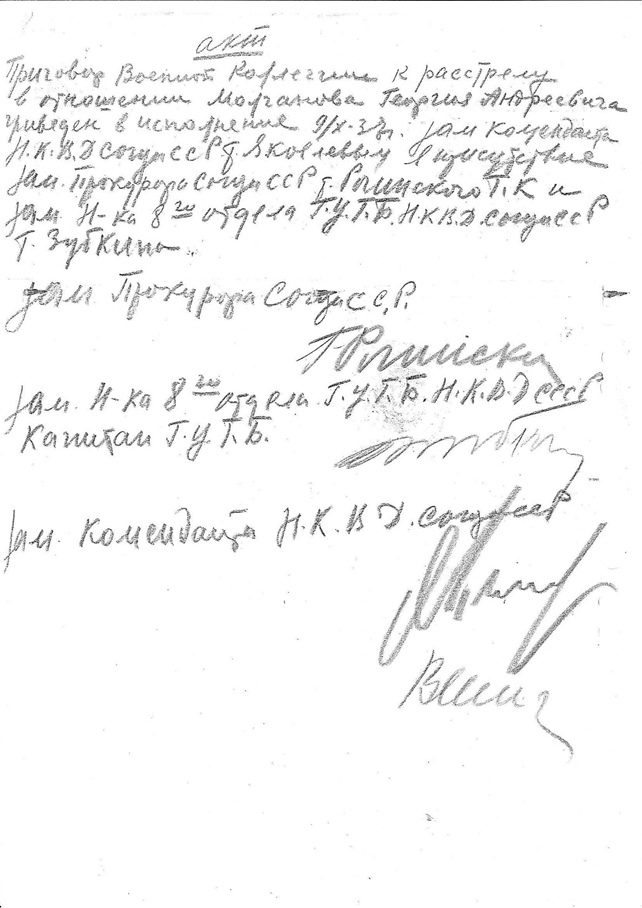 акт
Приговор Военной Коллегии к расстрелу
в отношении Молчанова Георгия Андреевича
приведен в исполнение 9/X-37г. зам коменданта
Н.К.В.Д Союза ССР т. Яковлевым в присутствие
зам. Прокурора Союза ССР т. Рогинского Г.К и
зам Н-ка 8го отдела Г.У.Г.Б. Н К В.Д. Союза ССР
т. Зубкина.
зам. Прокурора Союза С.С.Р.
Г Рогинский
зам. Н-ка 8го отдела Г.У.Г.Б. Н.К.В.Д СССР
Капитан Г.У.Г.Б.
зам. Коменданта Н.К.В.Д. Союза ССР